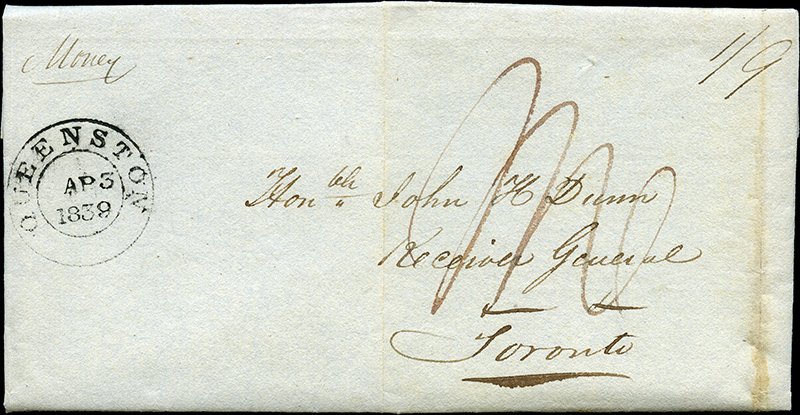 Money
1/9
QUEENSTON
AP 3
1839
Hon.ble John H Dunn
Receiver General
Toronto